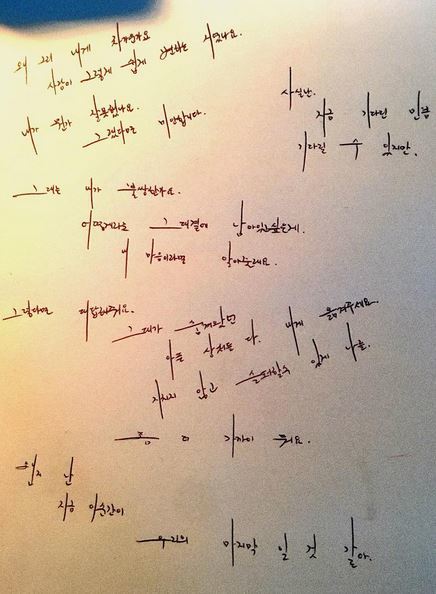 왜 그리 내게 차가운가요
사랑이 그렇게 쉽게 변하는 거였나요.
내가 뭔가 잘못했나요.
그랬다면 미안합니다.
사실난.
지금 기다린 만큼
기다릴 수 있지만.
그대는 내가 불쌍한가요.
어떻게라도 그대곁에 남아있고싶은게.
내 마음이라면 알아줄래요.
그렇다면 대답해줘요.
그대가 숨겨왔던
아픈 상처들 다. 내게 옮겨주세요.
지치지 않고 슬퍼할수 있게 나를.
좀 더 가까이 둬요.
왠지 난
지금 이순간이
우리의 마지막 일 것 같아.